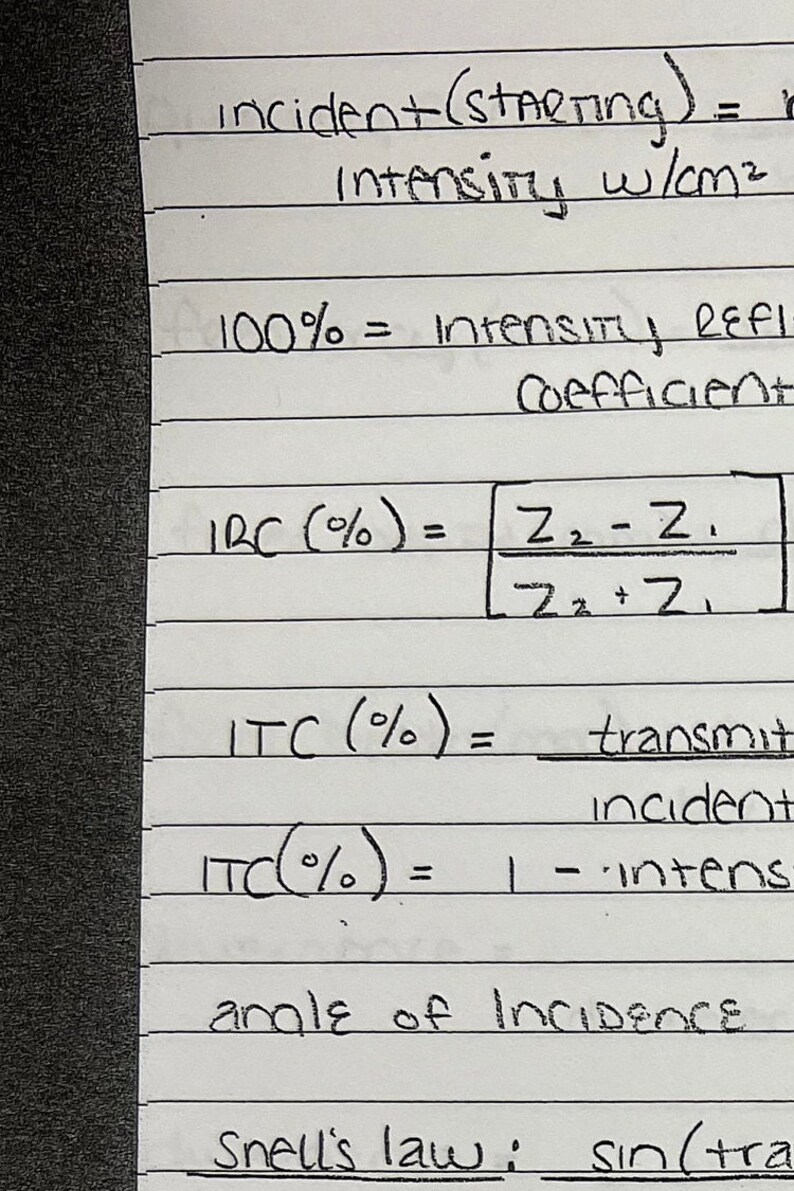 incident (starting) =
intensity w/cm²
100% = intensity
coefficient
IRC (%) = [Z₂ - Z₁
Z₂ + Z₁]
ITC (%) =
incident
ITC (%) = 1 -
angle of incidence
Snell's law: sin(